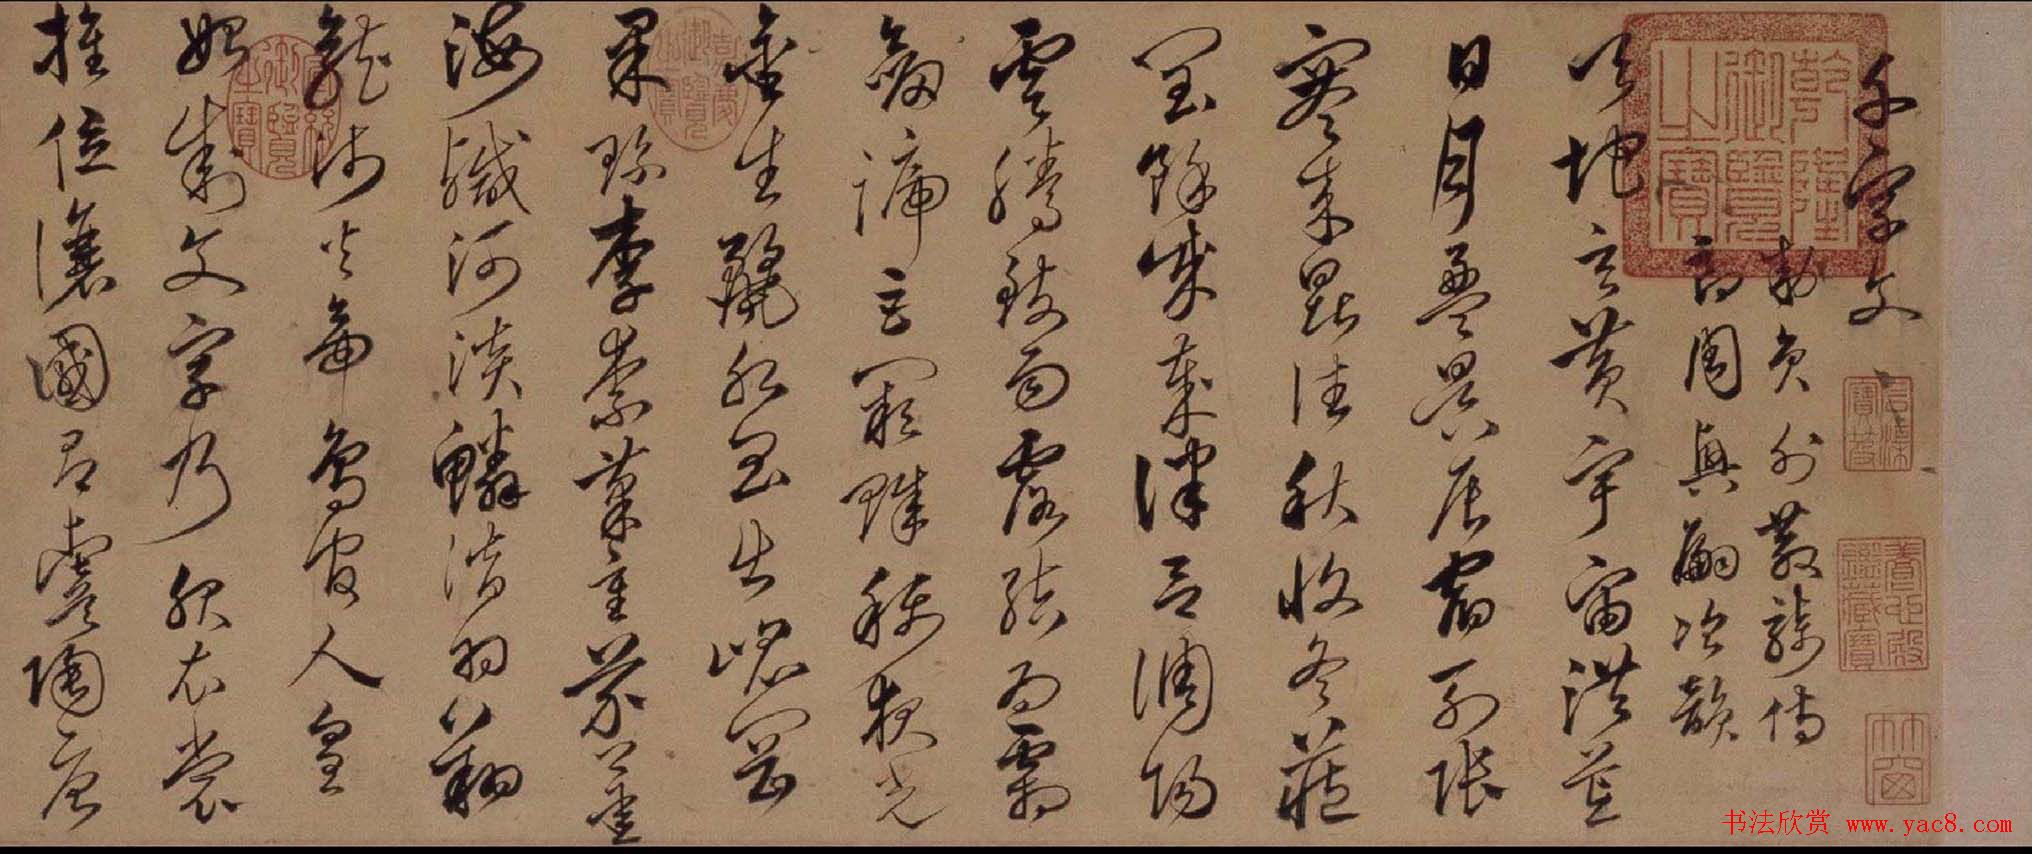 千字文
敕員外散騎侍
郎周興嗣次韻
天地玄黃宇宙洪荒
日月盈昃辰宿列張
寒來暑往秋收冬藏
閏餘成歲律呂調陽
雲騰致雨露結為霜
劍號巨闕珠稱夜光
金生麗水玉出崑岡
果珍李柰菜重芥薑
海鹹河淡鱗潛羽翔
龍師火帝鳥官人皇
始制文字乃服衣裳
推位讓國有虞陶唐
乾隆御覽之寶
石渠寶笈
養心殿鑑藏寶
嘉慶御覽之寶
宣統御覽之寶
书法欣赏 www.yac8.com